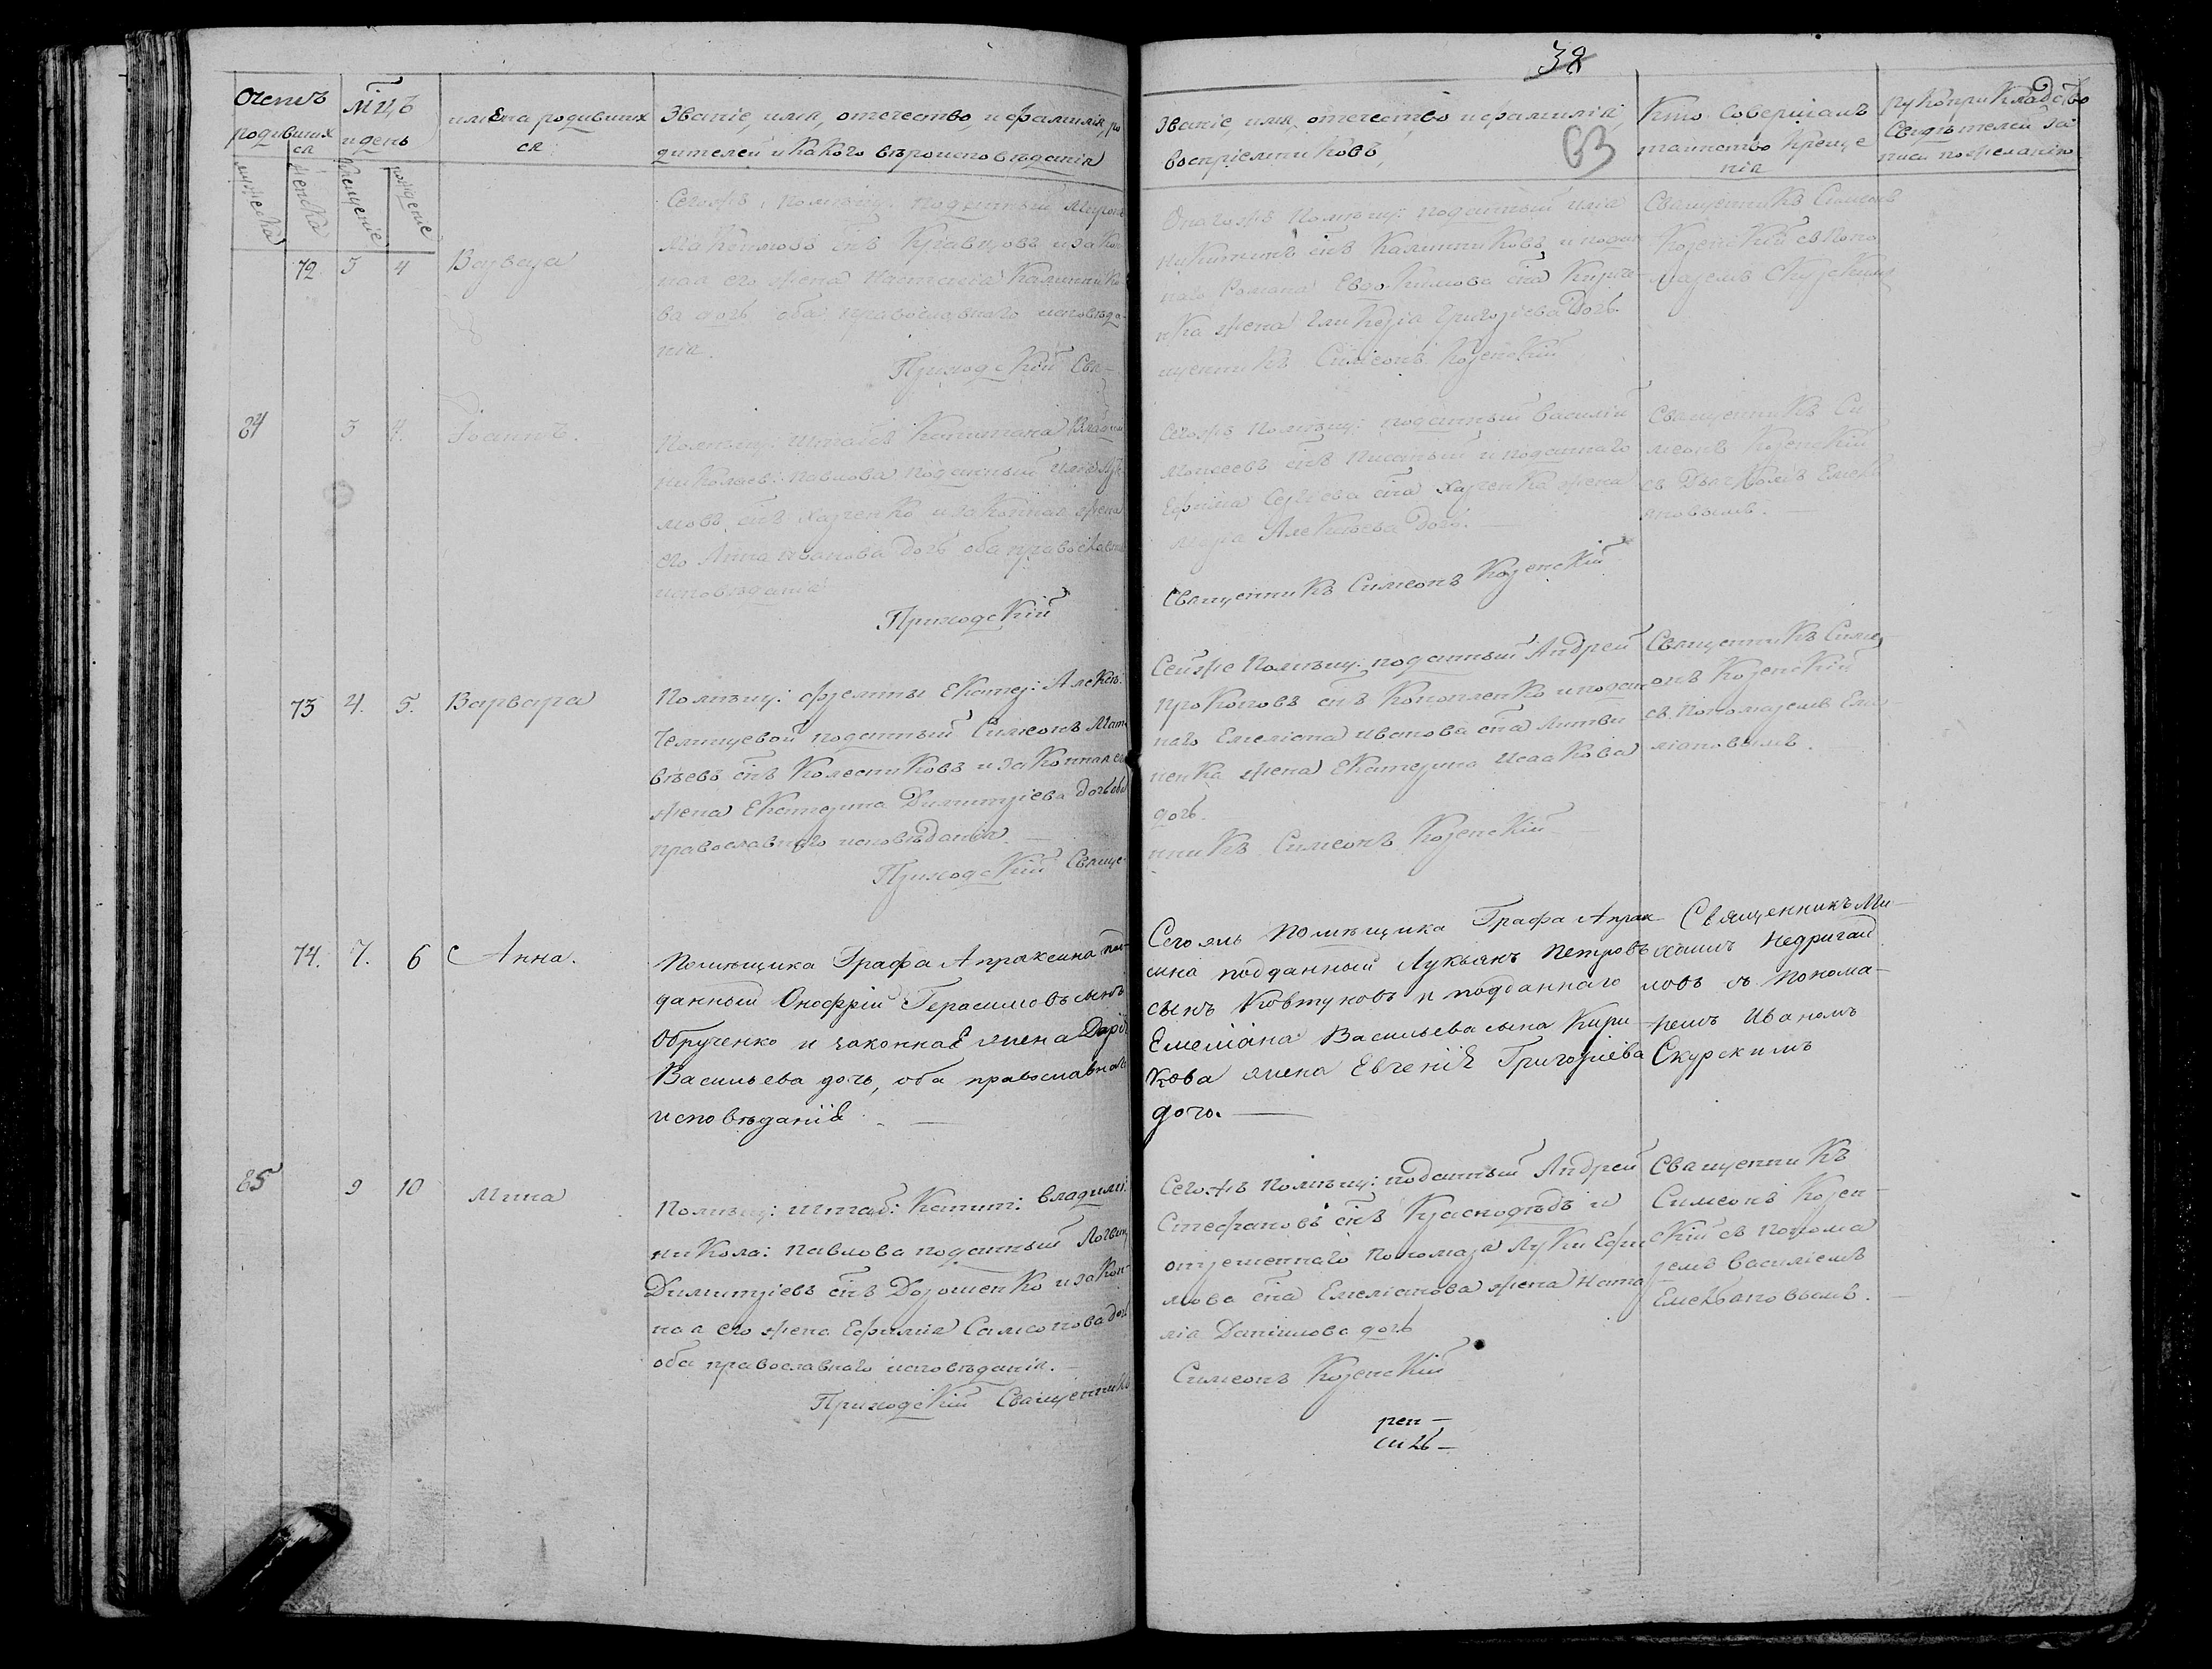 38
63
Счетъ
родивших
ся
мужеска
женска
мцъ
и день
крещеніе
рожденіе
имена родивших
ся
Званіе, имя, отечество, и фамилія, ро
дителей и какого вѣроисповѣданія
Званіе, имя, отечество и фамилія,
воспріемниковъ,
Кто совершалъ
таинство креще
нія
рукоприкладство
Свидѣтелей за
писи по желанію
72 3 4 Варвара
Сегожъ помѣщ: подданный
его жена Настасіа Калиннико
ва дочь оба православнаго исповѣда
нія.
Приходскій Свя-
Онагожъ Помѣщ: подданный илія
Никитинъ снъ Калинниковъ и подан
наго Романа Евдокимова сна Кириче
нка жена Гликерія Григоріева дочь.
щенникъ Симеонъ Козенскій
Священникъ Симеонъ
Козенскій съ Поно
маремъ Скурскимъ
84 3 4. Іоаннъ.
Помѣщ: Штабсъ Капитана Влад
Николаев: Павлова подданный
снъ Харченко и законная жена
его Анна Иванова дочь оба православн
исповѣданія
Приходскій
Сегожъ Помѣщ: подданный Василій
Моисеевъ снъ Писаный и подданнаго
Ефима Сергѣева сна Харченка жена
Марія Алексѣева дочь.
Священникъ Симеонъ Козенскій
Священникъ Си
меонъ Козенскій
съ Дьячкомъ Емел
яновымъ.
73 4. 5. Варвара
Помѣщ: Фрелины Екатер: Алексѣ:
подданный Симеонъ Мат
вѣевъ снъ Колесниковъ и законная ег
жена Екатерина Димитріева дочь оба
православнаго исповѣданія
Приходскій Свяще-
Сейже Помѣщ: подданный Андрей
Прокоповъ снъ Конопленко и подан
наго Емеліана Иванова сна Литви
ненка жена Екатерина Исаакова
дочь.
нникъ Симеонъ Козенскій
Священникъ Симе
онъ Козенскій
съ Пономаремъ Еме
ліановымъ.
74. 7. 6 Анна.
Помѣщика Графа Апраксина под
данный Онофрій Герасимовъ сынъ
Обрученко и законная жена Дарія
Васильева дочь, оба православнаго
исповѣданія.
Сегожъ помѣщика Графа Апрак
сина подданный Лукьянъ Петровъ
сынъ Ковтуновъ и подданнаго
Емеліана Васильева сына Кири
кова жена Евгенія Григоріева
дочь.
Священникъ Ми
хаилъ Недригай
ловъ съ Понома-
ремъ Иваномъ
Скурскимъ
85 9 10 Мина
Помѣщ: штаб: Капит: Владими:
Никола: Павлова подданный Логвин
Димитріевъ снъ Дорошенко и закон-
ная его жена Ефимія Самсонова доч
оба православнаго исповѣданія.
Приходскій Священникъ
Сегожъ Помѣщ: подданный Андрей
Стефановъ снъ Краснодѣдъ и
отрешеннаго Пономаря Луки Ефи
мова сна Емеліанова жена Ната
лія Даніилова дочь
Симеонъ Козенскій
Священникъ
Симеонъ Козен-
скій съ понома
ремъ Василіемъ
Емельяновымъ.